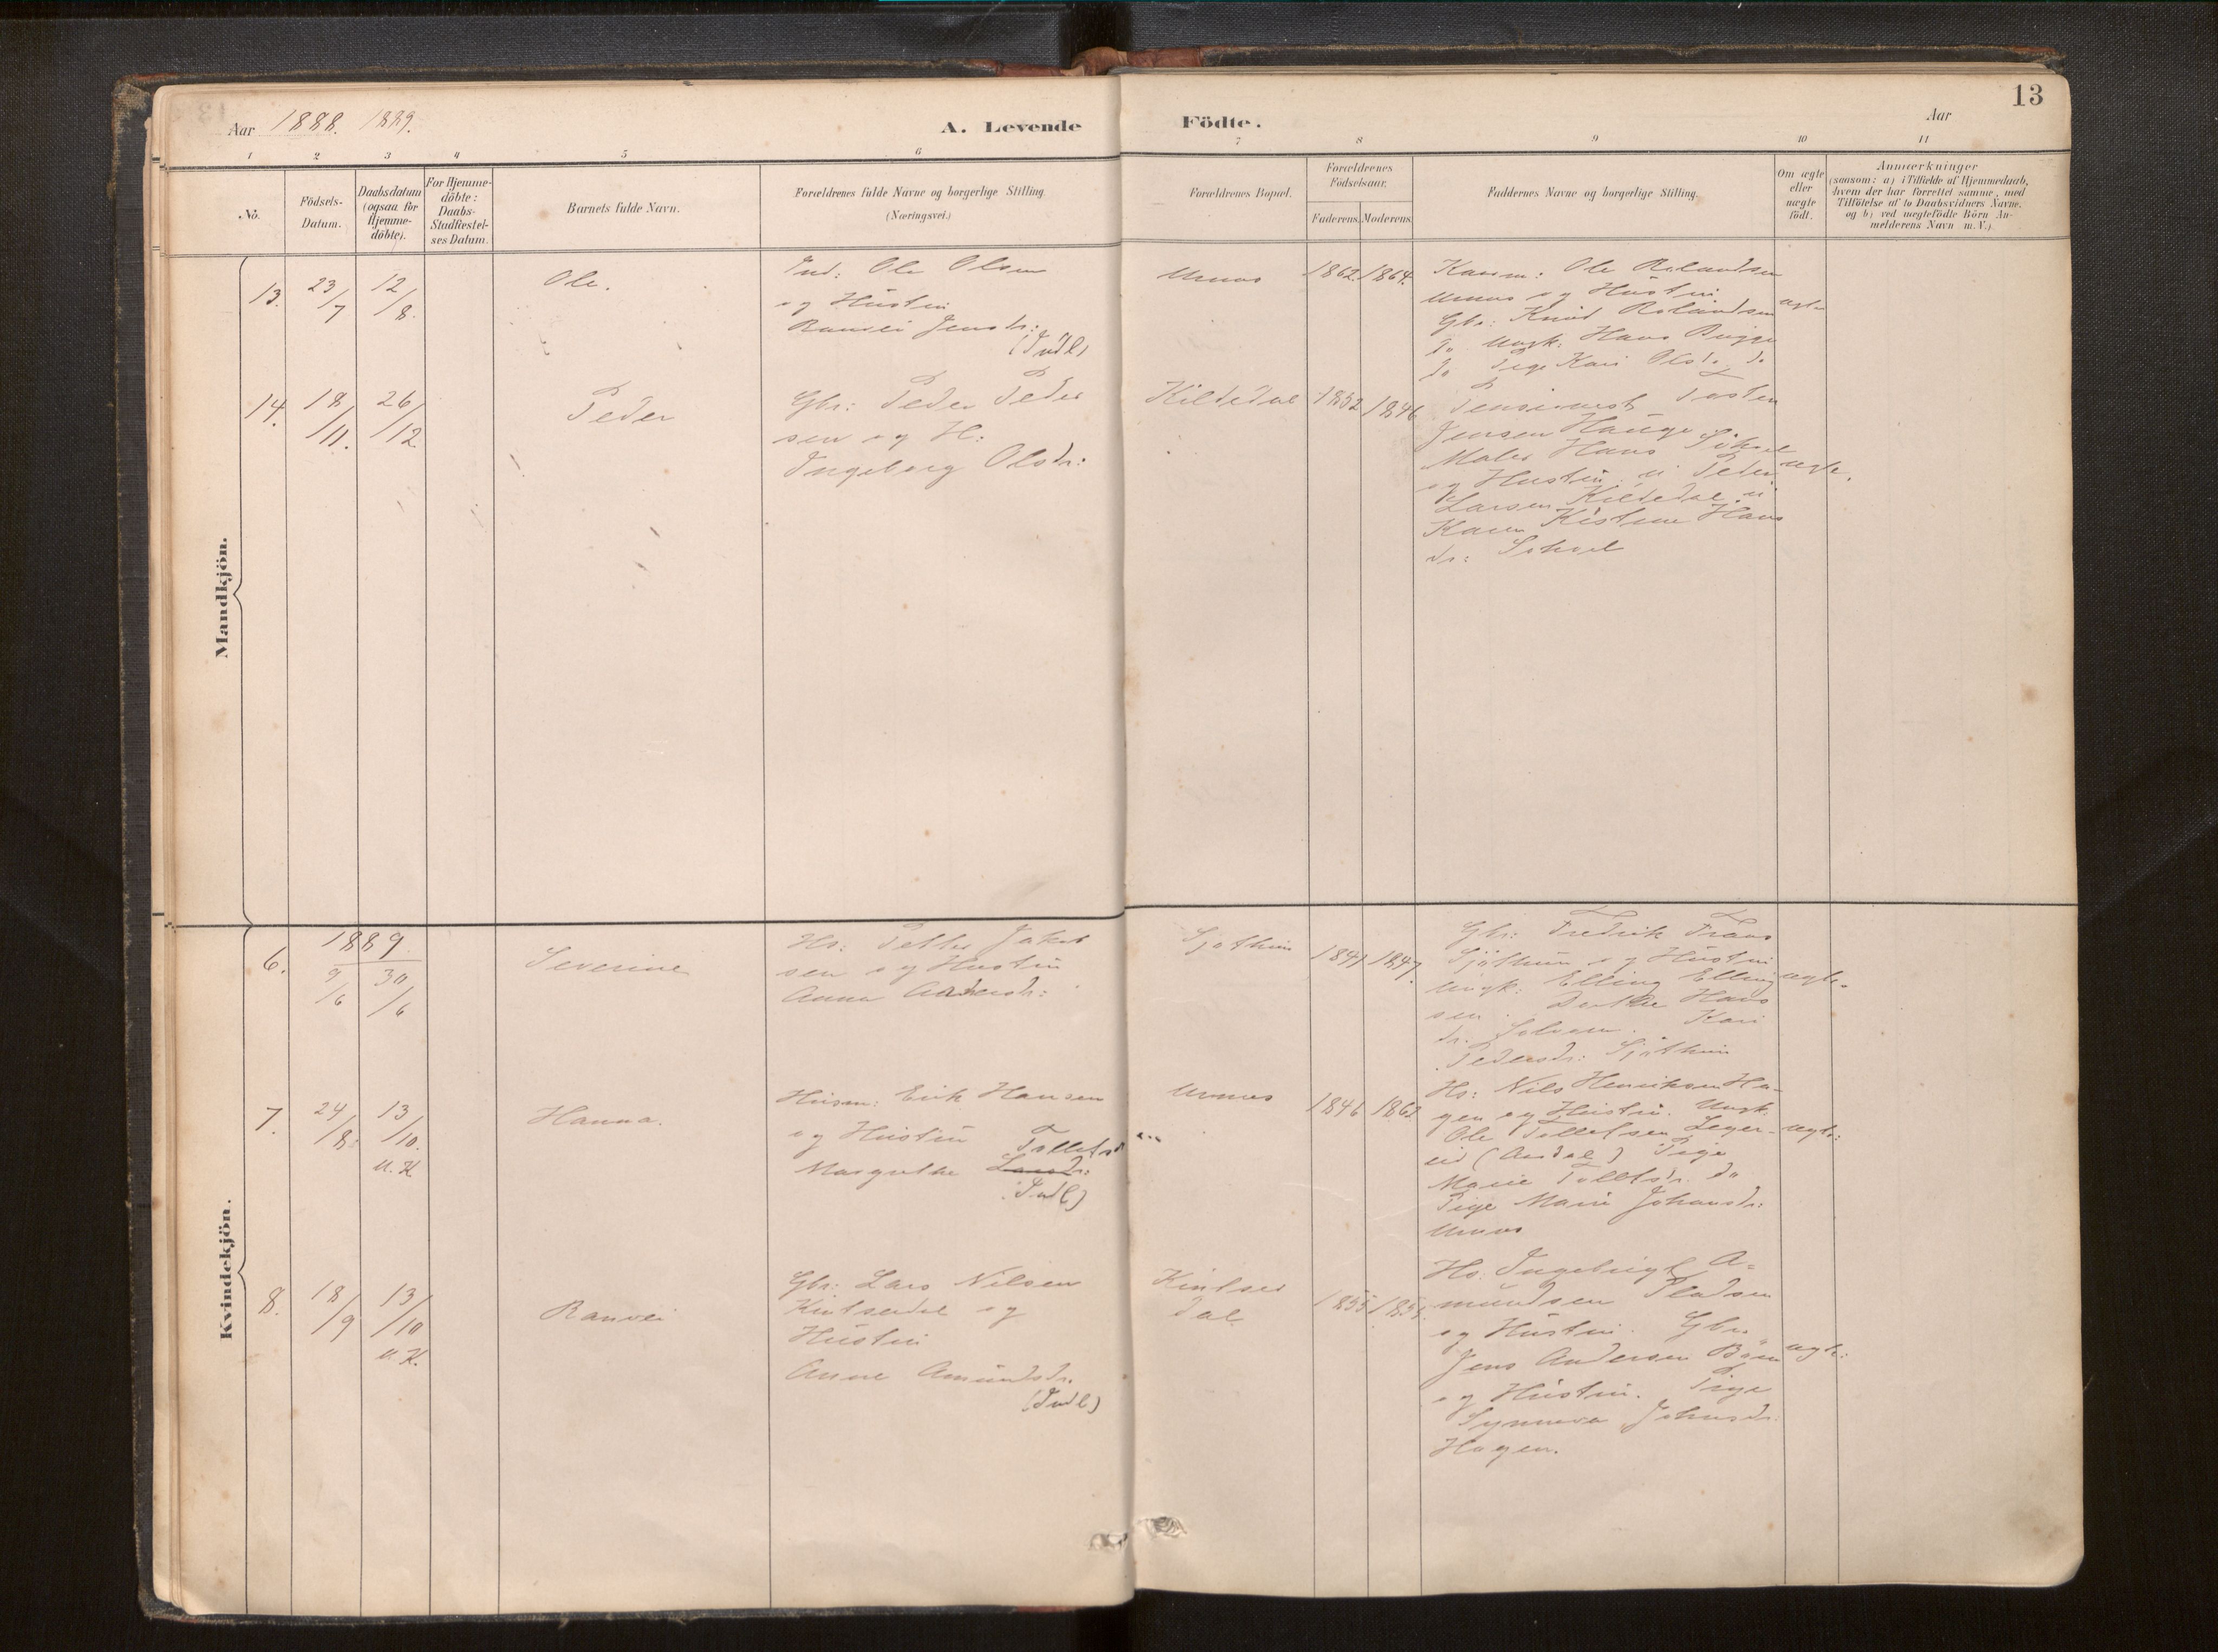 13
Aar 1888. 1889.
A. Levende
Födte.
Aar
1 2 3 4 5 6 7 8 9 10 11
No.
Födsels-
Datum.
Daabsdatum
(ogsaa for
Hjemme-
döbte).
For Hjemme-
döbte:
Daabs-
Stadfæstel-
ses Datum.
Barnets fulde Navn.
Forældrenes fulde Navne og borgerlige Stilling
(Næringsvei.)
Forældrenes Bopæl.
Forældrenes
Födselsaar.
Faderens. Moderens.
Faddernes Navne og borgerlige Stilling.
Om ægte
eller
uægte
födt.
Anmærkninger
(saasom: a) i Tilfælde af Hjemmedaab,
hvem der har forrettet samme, med
Tilföielse af to Daabsvidners Navne.
og b) ved uægtefödte Börn An-
melderens Navn m. V.).
Mandkjön.
13.
23/7
12/8.
Ole.
Ind: Ole Olsen
og Hustru
Ranvei Jensdr:
(Indl)
Urnes
1862. 1864.
Kaarm: Ole Rolandsen
Urnes og Hustru
Gbr: Knud Rolandsen
do Ungk: Hans Bugge
do Pige Kari Olsd. do
ægte
14.
18/11.
26/12
Peder
Gbr: Peder Peder
sen og H:
Ingeborg Olsdr:
Kildedal
1852 1846
Pensionist Tosten
Jensen Hauge
Maler Hans
og Hustru. u Peder
Larsen Kildedal. u
Karen Kistine Hans
dr:
ægte.
Kvindekjön.
6.
1889
9/6
30/6
Severine
Hs: Petter Jakob
sen og Hustru
Anna Andersdr:
Sjøthun
1841 1847.
Gbr: Fredrik Frans
Sjøthun og Hustru
Ungk: Elling Elling
sen. Dorthe Hans
dr. Solvorn. Kari
Pedersdr: Sjøthun
ægte.
7.
24/8.
13/10.
u. K
Hanna.
Husm: Erik Hansen
og Hustru Tolletsd
Margrethe
(Indl)
Urnes
1846 1862
Hs: Nils Henriksen Ha-
gen og Hustru. Ungk.
Ole Tolletsen Leger-
eid (Aardal) Pige
Marie Tolletsdr. do
Pige Marie Johansdr:
Urnes
ægte:
8.
18/9
13/10
u. K.
Ranvei
Gbr: Lars Nilsen
Kintsedal og
Hustru
Anne Amundsdr.
(Indl)
Kintse
dal
1855
Hs. Ingebrigt A-
mundsen Pladsen
og Hustru. Gbr.
Jens Andersen Bøen
og Hustru. Pige
Synneva Johnsdr:
Hagen.
ægte: